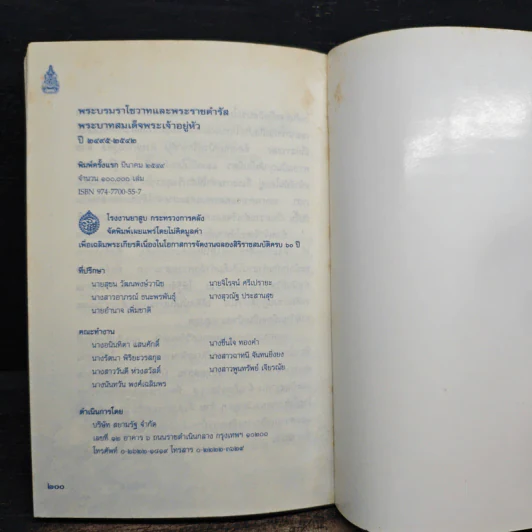 พระบรมราโชวาทและพระราชดำรัส
พระบาทสมเด็จพระเจ้าอยู่หัว
ปี ๒๔๙๕-๒๕๔๒
พิมพ์ครั้งแรก มีนาคม ๒๕๔๙
จำนวน ๑๐๐,๐๐๐ เล่ม
ISBN 974-7700-55-7
โรงงานยาสูบ กระทรวงการคลัง
จัดพิมพ์เผยแพร่โดยไม่คิดมูลค่า
เพื่อเฉลิมพระเกียรติเนื่องในโอกาสการจัดงานฉลองสิริราชสมบัติครบ ๖๐ ปี
ที่ปรึกษา
นายสุชน วัฒนพงษ์วานิช นายจิโรจน์ ศรีเปรายะ
นางสาวอาภรณ์ ชนะพรพันธุ์ นางสุวณัฐ ประสานสุข
นายอำนาจ เพิ่มชาติ
คณะทำงาน
นางอนันทิตา แสนศักดิ์ นางชื่นใจ ทองคำ
นางรัตนา พิริยะวรสกุล นางสาวฉาทนี จันทนยิ่งยง
นางสาววันดี ห่วงสวัสดิ์ นางสาวพูนทรัพย์ เจียวณัย
นางนันทวัน พงศ์เฉลิมพร
ดำเนินการโดย
บริษัท สยามรัฐ จำกัด
เลขที่ ๑๒ อาคาร ๖ ถนนราชดำเนินกลาง กรุงเทพฯ ๑๐๒๐๐
โทรศัพท์ โทรสาร
๒๐๐